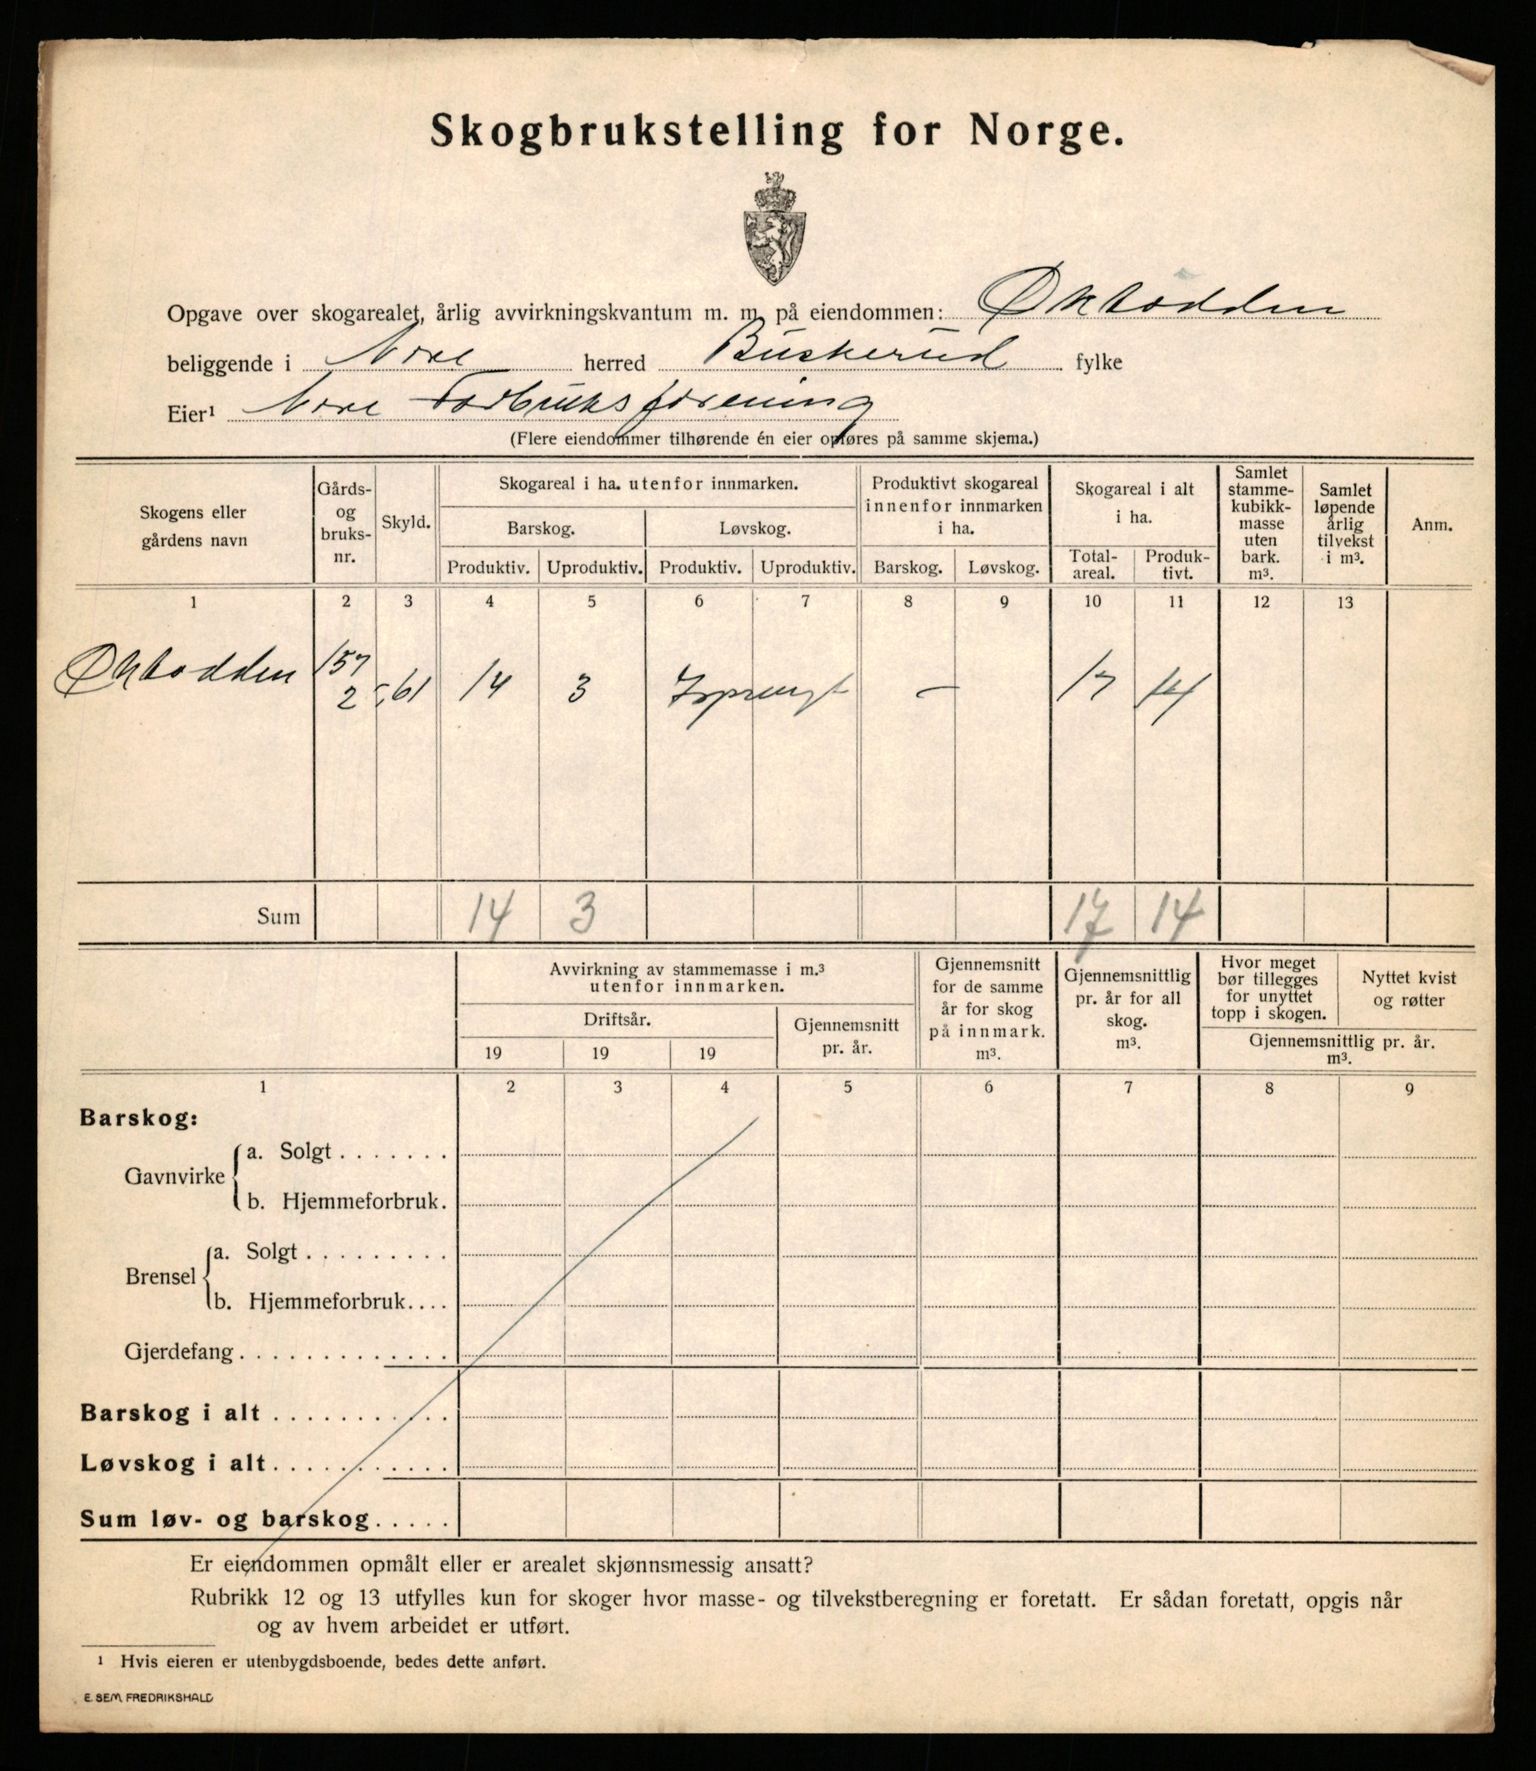 Skogbrukstelling for Norge.
Opgave over skogarealet, årlig avvirkningskvantum m. m. på eiendommen: Øktodden
beliggende i Nore herred Buskerud fylke
Eier¹ Nore Forbruksforening
(Flere eiendommer tilhørende én eier opføres på samme skjema.)
Skogens eller gårdens navn
Gårds- og bruks- nr.
Skyld.
Skogareal i ha. utenfor innmarken.
Barskog. Løvskog.
Produktiv. Uproduktiv. Produktiv. Uproduktiv.
Produktivt skogareal innenfor innmarken i ha.
Barskog. Løvskog.
Skogareal i alt i ha.
Total- areal. Produk- tivt.
Samlet stamme- kubikk- masse uten bark. m³.
Samlet løpende årlig tilvekst i m³.
Anm.
1 2 3 4 5 6 7 8 9 10 11 12 13
Øktodden 157 2 0,61 14 3 Isprengt — 17 14
Sum 14 3 17 14
Avvirkning av stammemasse i m.³ utenfor innmarken.
Driftsår.
19 19 19
Gjennemsnitt pr. år.
Gjennemsnitt for de samme år for skog på innmark. m³.
Gjennemsnittlig pr. år for all skog. m³.
Hvor meget bør tillegges for unyttet topp i skogen.
Nyttet kvist og røtter
Gjennemsnittlig pr. år. m³.
1 2 3 4 5 6 7 8 9
Barskog:
Gavnvirke
a. Solgt . . . . . . .
b. Hjemmeforbruk.
Brensel
a. Solgt . . . . . . . . .
b. Hjemmeforbruk. . . .
Gjerdefang . . . . . . . . . . . . .
Barskog i alt . . . . . . . . . . .
Løvskog i alt . . . . . . . . . . .
Sum løv- og barskog . . . . .
Er eiendommen opmålt eller er arealet skjønnsmessig ansatt?
Rubrikk 12 og 13 utfylles kun for skoger hvor masse- og tilvekstberegning er foretatt. Er sådan foretatt, opgis når
og av hvem arbeidet er utført.
¹ Hvis eieren er utenbygdsboende, bedes dette anført.
E. SEM, FREDRIKSHALD